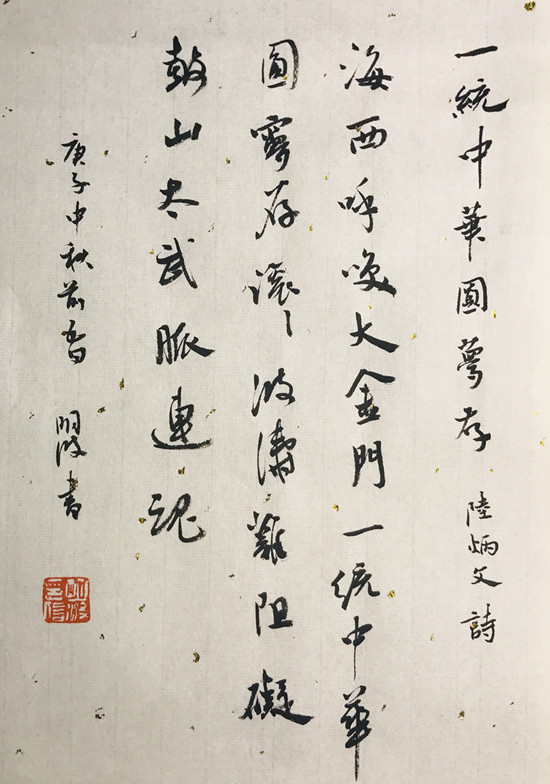 一統中華圓夢存 陸炳文詩
海西呼喚大金門一統中華
圓夢存滾滾波濤難阻礙
鼓山太武脈連魂
庚子中秋前 書